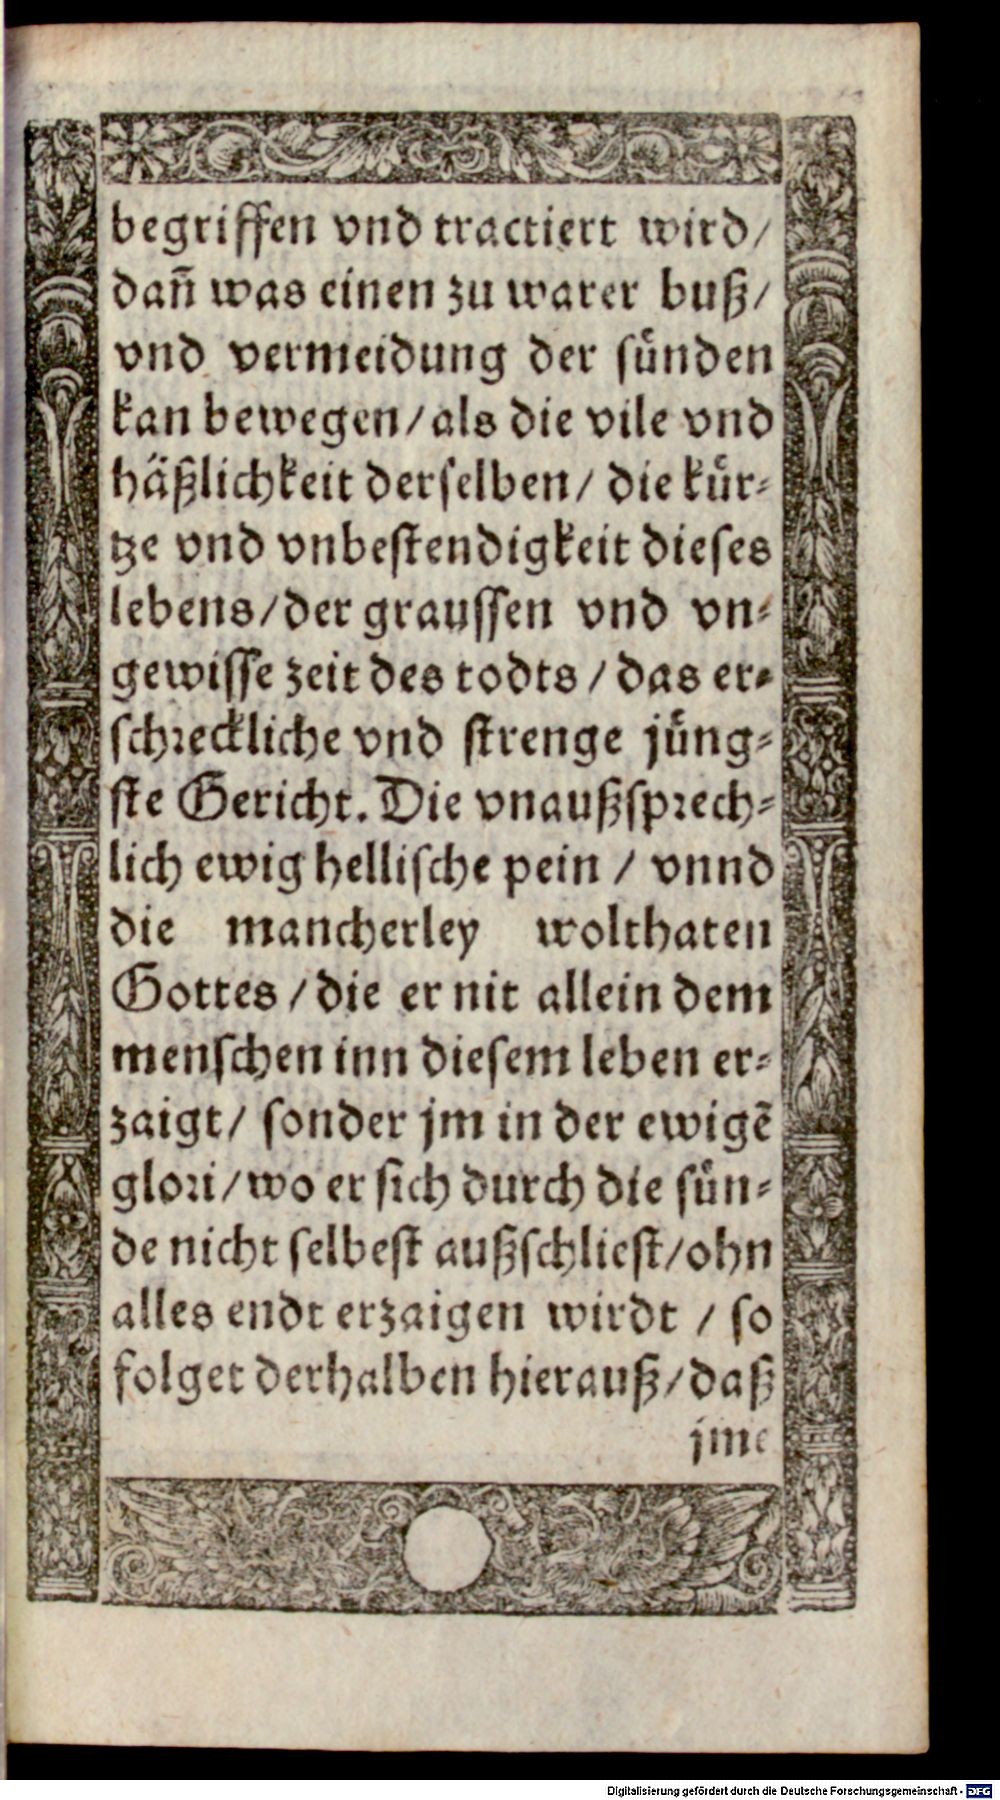 begriffen vnd tractiert wird/
dañ was einen zu warer buß/
vnd vermeidung der suͤnden
kan bewegen/als die vile vnd
häßlichkeit derselben/ die kuͤr⸗
tze vnd vnbestendigkeit dieses
lebens/der graussen vnd vn⸗
gewisse zeit des todts /das er⸗
schreckliche vnd strenge juͤng⸗
ste Gericht. Die vnaußsprech⸗
lich ewig hellische pein / vnnd
die mancherley wolthaten
Gottes /die er nit allein dem
menschen inn diesem leben er⸗
zaigt/ sonder jm in der ewigẽ
glori/wo er sich durch die suͤn⸗
de nicht selbest außschliest/ohn
alles endt erzaigen wirdt /so
folget derhalben hierauß/daß
jme
Digitalisierung gefördert durch die Deutsche Forschungsgemeinschaft - DFG